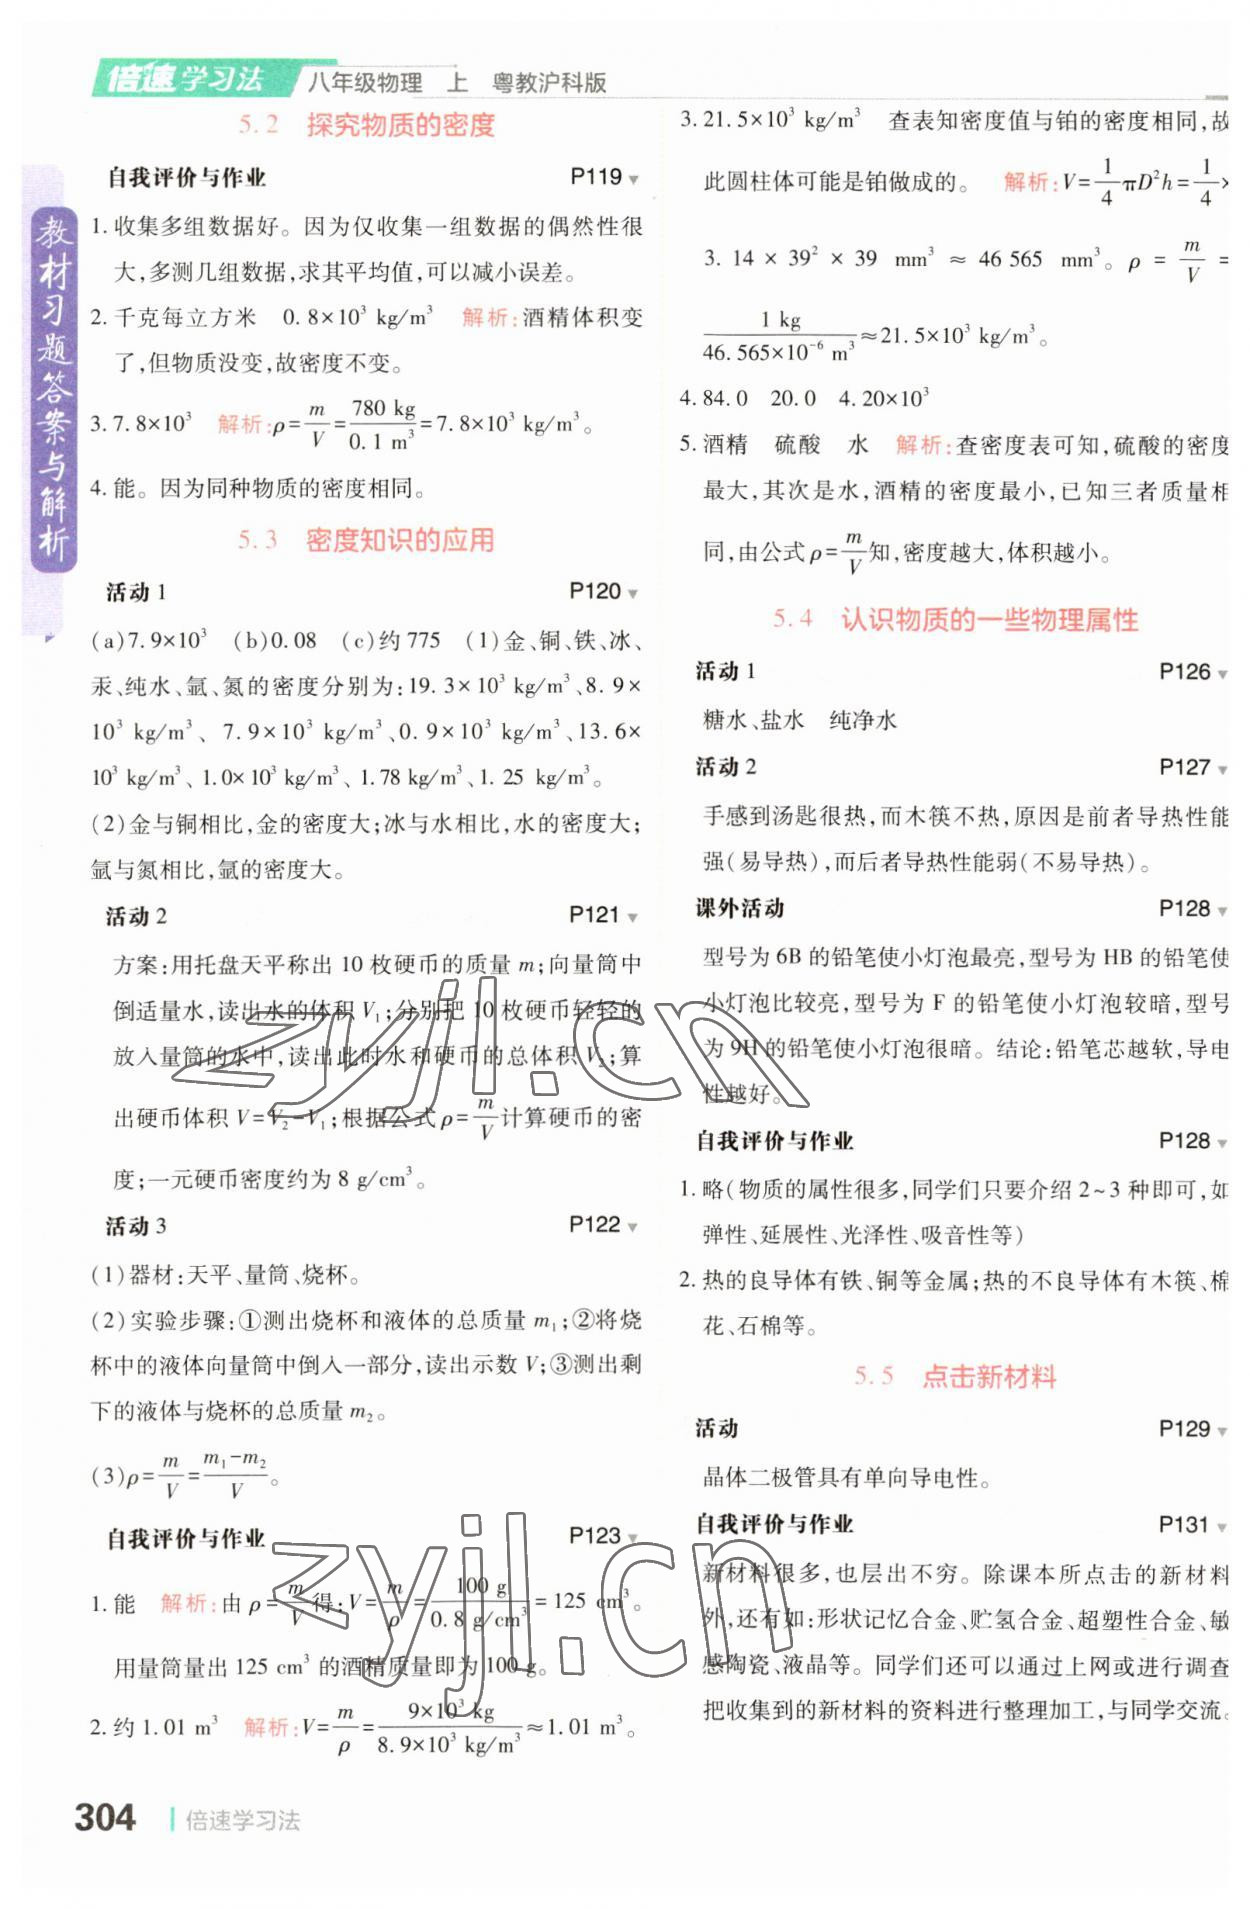 倍速学习法 八年级物理 上 粤教沪科版
教材习题答案与解析
5.2 探究物质的密度
自我评价与作业 P119
1.收集多组数据好。因为仅收集一组数据的偶然性很
大,多测几组数据,求其平均值,可以减小误差。
2.千克每立方米 0.8×10³ kg/m³ 解析:酒精体积变
了,但物质没变,故密度不变。
3.7.8×10³ 解析:ρ=m/V=780 kg/0.1 m³=7.8×10³ kg/m³。
4.能。因为同种物质的密度相同。
5.3 密度知识的应用
活动1 P120
(a)7.9×10³ (b)0.08 (c)约775 (1)金、铜、铁、冰、
汞、纯水、氩、氮的密度分别为:19.3×10³ kg/m³、8.9×
10³ kg/m³、7.9×10³ kg/m³、0.9×10³ kg/m³、13.6×
10³ kg/m³、1.0×10³ kg/m³、1.78 kg/m³、1.25 kg/m³。
(2)金与铜相比,金的密度大;冰与水相比,水的密度大;
氩与氮相比,氩的密度大。
活动2 P121
方案:用托盘天平称出10枚硬币的质量m;向量筒中
倒适量水,读出水的体积V₁;分别把10枚硬币轻轻的
放入量筒的水中,读出此时水和硬币的总体积V₂;算
出硬币体积V=V₂-V₁;根据公式ρ=m/V计算硬币的密
度;一元硬币密度约为8 g/cm³。
活动3 P122
(1)器材:天平、量筒、烧杯。
(2)实验步骤:①测出烧杯和液体的总质量m₁;②将烧
杯中的液体向量筒中倒入一部分,读出示数V;③测出剩
下的液体与烧杯的总质量m₂。
(3)ρ=m/V=(m₁-m₂)/V。
自我评价与作业 P123
1.能 解析:由ρ=m/V得:V=m/ρ=100 g/0.8 g/cm³=125 cm³。
用量筒量出125 cm³的酒精质量即为100 g。
2.约1.01 m³ 解析:V=m/ρ=9×10³ kg/8.9×10³ kg/m³≈1.01 m³。
3.21.5×10³ kg/m³ 查表知密度值与铂的密度相同,故
此圆柱体可能是铂做成的。 解析:V=1/4πD²h=1/4×
3.14×39²×39 mm³≈46 565 mm³。ρ=m/V=
1 kg/46.565×10⁻⁶ m³≈21.5×10³ kg/m³。
4.84.0 20.0 4.20×10³
5.酒精 硫酸 水 解析:查密度表可知,硫酸的密度
最大,其次是水,酒精的密度最小,已知三者质量相
同,由公式ρ=m/V知,密度越大,体积越小。
5.4 认识物质的一些物理属性
活动1 P126
糖水、盐水 纯净水
活动2 P127
手感到汤匙很热,而木筷不热,原因是前者导热性能
强(易导热),而后者导热性能弱(不易导热)。
课外活动 P128
型号为6B的铅笔使小灯泡最亮,型号为HB的铅笔使
小灯泡比较亮,型号为F的铅笔使小灯泡较暗,型号
为9H的铅笔使小灯泡很暗。结论:铅笔芯越软,导电
性越好。
自我评价与作业 P128
1.略(物质的属性很多,同学们只要介绍2~3种即可,如
弹性、延展性、光泽性、吸音性等)
2.热的良导体有铁、铜等金属;热的不良导体有木筷、棉
花、石棉等。
5.5 点击新材料
活动 P129
晶体二极管具有单向导电性。
自我评价与作业 P131
新材料很多,也层出不穷。除课本所点击的新材料
外,还有如:形状记忆合金、贮氢合金、超塑性合金、敏
感陶瓷、液晶等。同学们还可以通过上网或进行调查
把收集到的新材料的资料进行整理加工,与同学交流。
zyjl.cn
zyjl.cn
304 倍速学习法